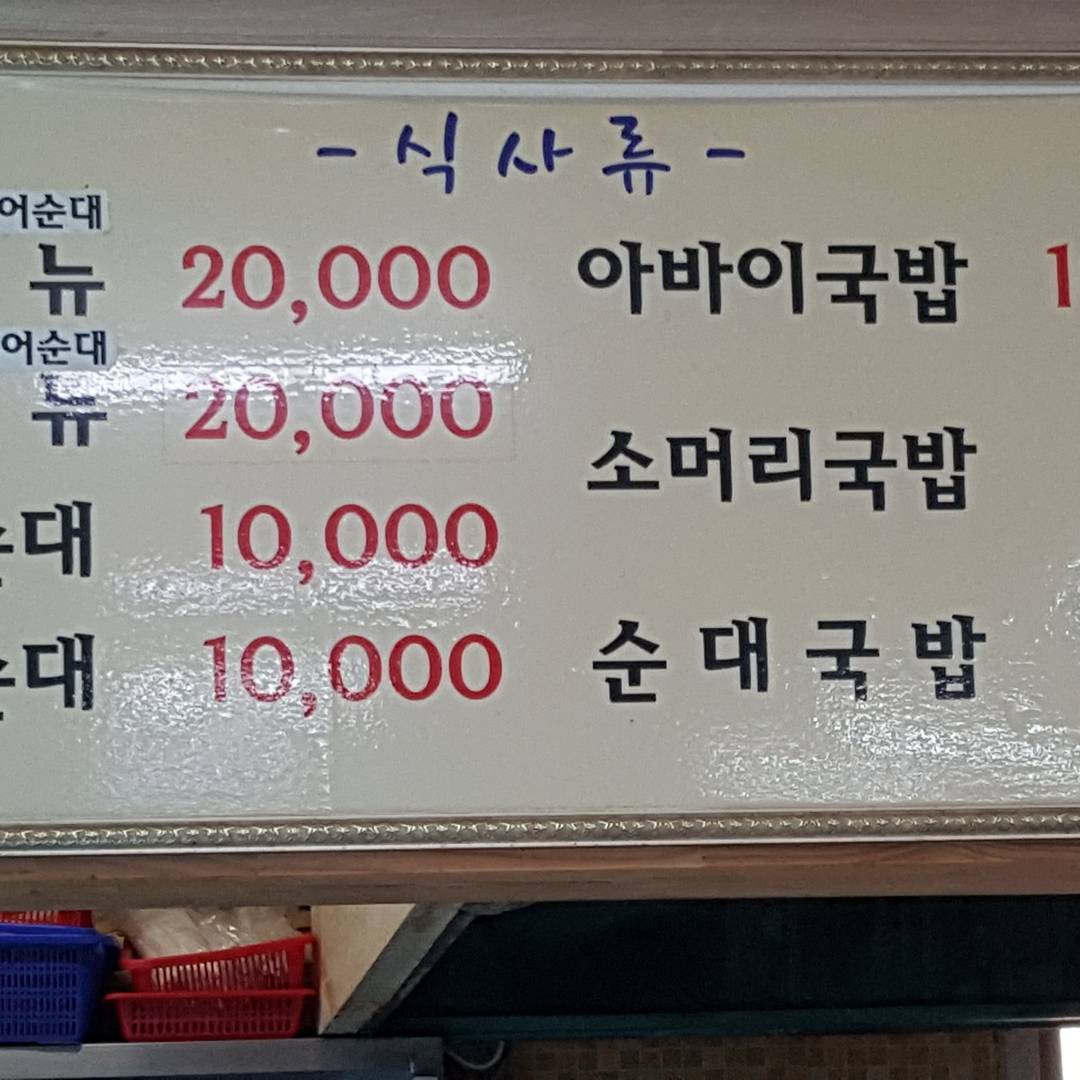 - 식사류 -
어순대
뉴 20,000
어순대
뉴 20,000
순대 10,000
순대 10,000
아바이국밥 1
소머리국밥
순대국밥